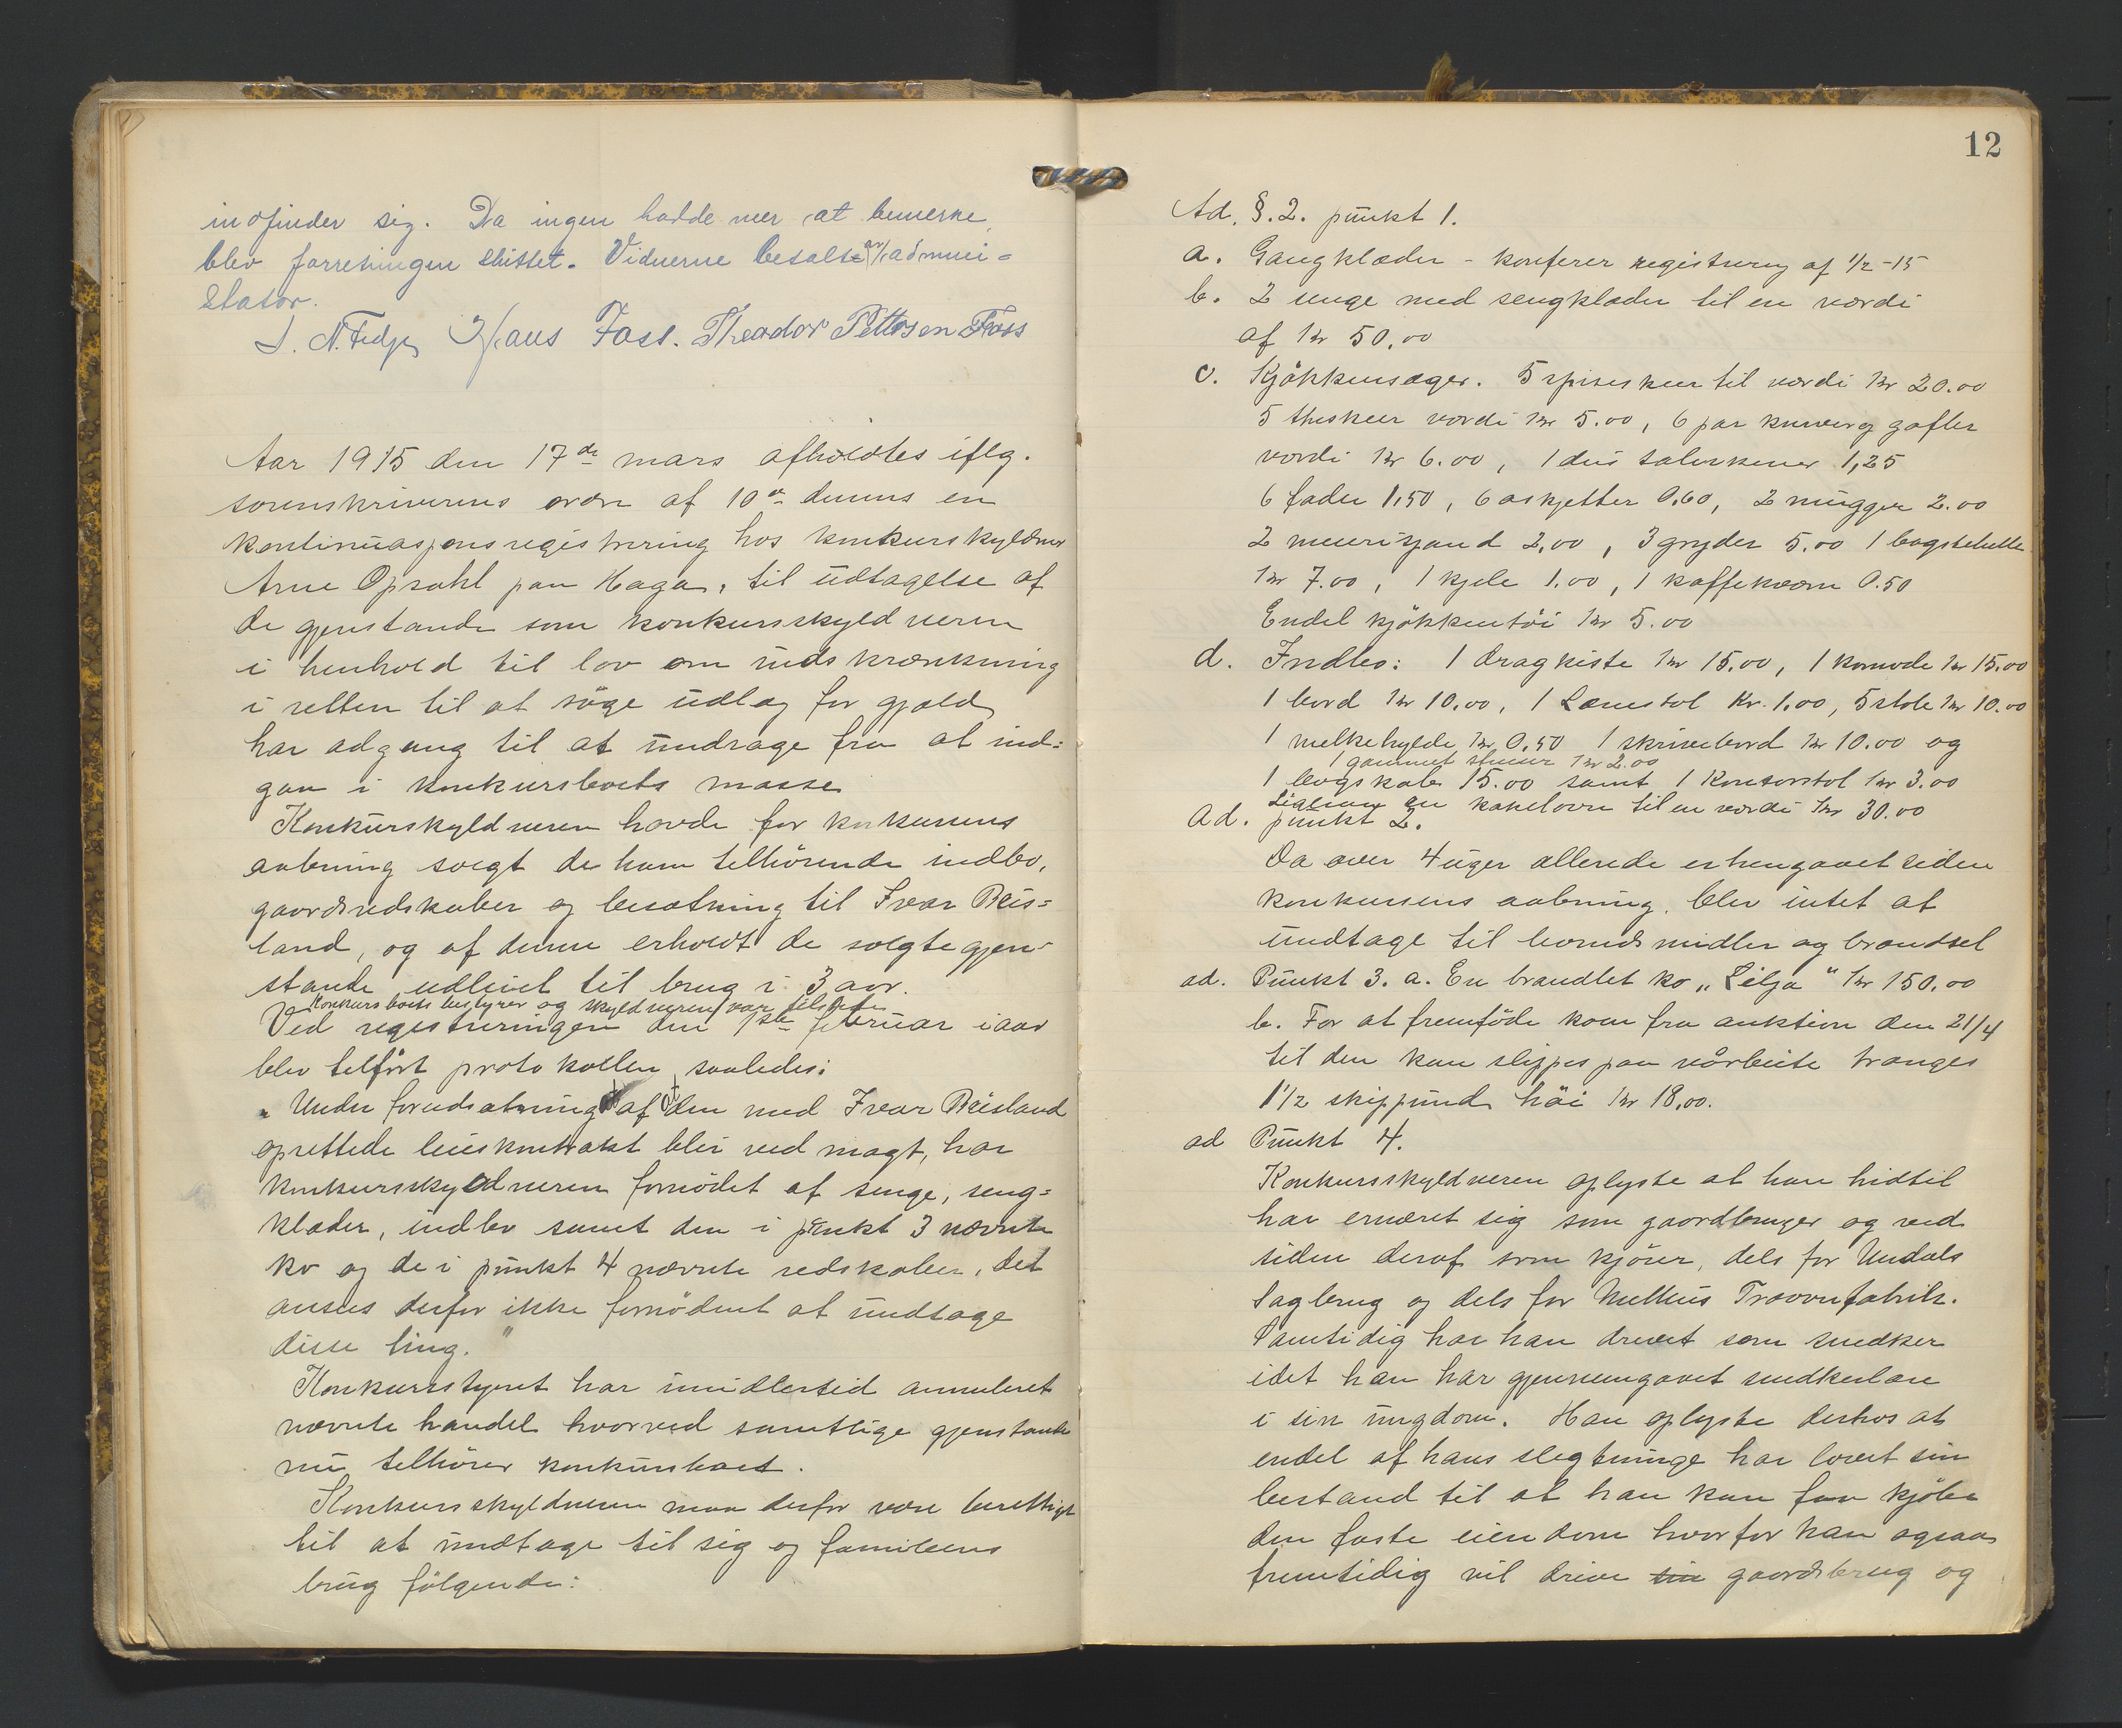 indfinder sig. Da ingen hadde mer at bemerke
blev forretningen sluttet. Vidnerne betalt av admini=
strator.
Hans Foss. Theodor Pettersen Foss
Aar 1915 den 17de mars afholdtes iflg.
sorenskriverens ordre af 10de dennes en
kontinuasjonsregistrering hos konkursskyldner
Arne Opsahl paa Haga, til udtagelse af
de gjenstande som konkursskyldneren
i henhold til lov om indskrænkning
i retten til at söge udlæg for gjæld
har adgang til at undrage fra at ind=
gaa i konkursboets masse
Konkurskyldneren havde for konkursens
aabning solgt de ham tilhörende indbo,
gaardsredskaber og besætning til Ivar Reis=
land, og af denne erholdt de solgte gjen=
stande udleiet til brug i 3 aar.
Konkursboets bestyrer og skyldneren var tilstede
Ved registreringen den 1ste februar iaar
blev tilfört protokollen saaledes:
"Under forudsætning af at den med Ivar Reisland
oprettede leiekontrakt blir ved magt, har
konkursskyldneren fornödet af senge, seng=
klæder, indbo samt den i punkt 3 nævnte
ko og de i punkt 4 nævnte redskaber, det
ansees derfor ikke fornödent at undtage
disse ting."
Konkursstyret har imidlertid annuleret
nævnte handel hvorved samtlige gjenstande
nu tilhörer konkursboet.
Konkursskyldneren maa derfor være berettiget
til at undtage til sig og familiens
brug fölgende:
12
Ad. §.2. punkt 1.
a. Gangklæder - konferer registrering af 1/2-15
b. 2 senge med sengklæder til en værdi
af kr 50.00
c. Kjökkensager. 5 spiseskeer til værdi kr 20.00
5 theskeer værdi kr 5.00, 6 par kniver og gafler
værdi kr 6.00, 1 dus talerkener 1,25
6 fader 1,50, 6 askjetter 0,60, 2 mugger 2.00
2 2,00, 3 gryder 5.00 1
kr 7.00, 1 kjele 1.00, 1 kaffekværn 0.50
Endel kjökkentöi kr 5.00
d. Indbo: 1 dragkiste kr 15.00, 1 komode kr 15.00
1 bord kr 10.00, 1 Lænestol kr. 1.00, 5 stole kr 10.00
1 melkehylde kr 0.50 1 skrivebord kr 10.00 og
1 gammel kr 2.00
1 bogskab 15.00 samt 1 Kontorstol kr 3.00
Ligesaa en kakelovn til en værdi kr 30.00
Ad. punkt 2.
Da over 4 uger allerede er hengaaet siden
konkursens aabning, blev intet at
undtage til levnedsmidler og brændsel
ad. Punkt 3. a. En brandlet ko „Lilja" kr 150.00
b. For at fremföde koen fra auktion den 21/4
til den kan slippes paa vårbeite trænges
1 1/2 skippund höi kr 18.00.
ad Punkt 4.
Konkursskyldneren oplyste at han hidtil
har ernæret sig som gaardbruger og ved
siden deraf som kjörer, dels for Undals
Sagbrug og dels for Melhus Trævarefabrik.
Samtidig har han drevet som snedker
idet han har gjennemgaaet snedkerlære
i sin ungdom. Han oplyste derhos at
endel af hans slegtninge har lovet sin
bestand til at han kan faa kjöbe
den faste eiendom hvorfor han ogsaa
fremtidig vil drive sin gaardsbrug og